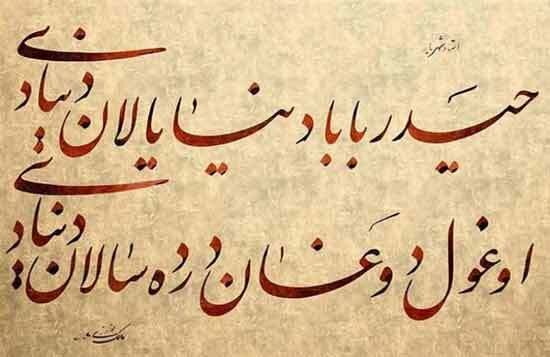 استاد شهریار
حیدربابا دنیا یالان دنیادی
اوغول دوغان درده سالان دنیادی